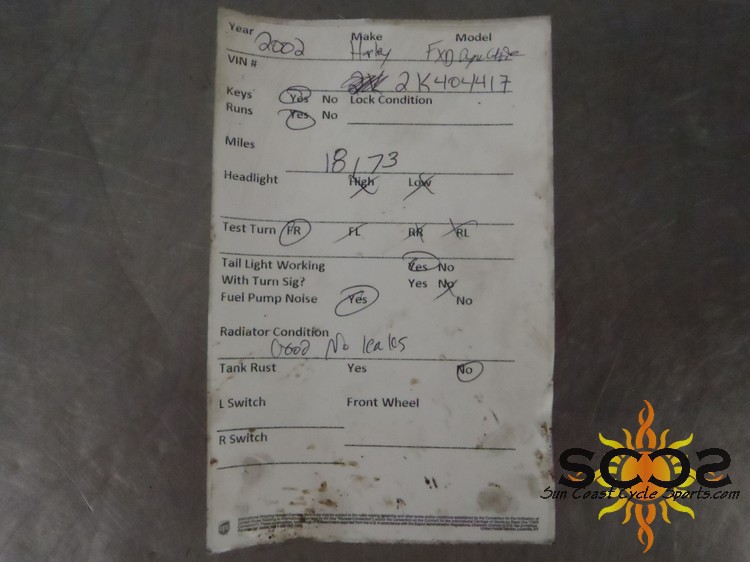 Year 2002 Make Harley Model FXD
VIN # 2K404417
Keys Yes No Lock Condition
Runs Yes No
Miles 18,173
Headlight High Low
Test Turn FR FL RR RL
Tail Light Working Yes No
With Turn Sig? Yes No
Fuel Pump Noise Yes No
Radiator Condition
Good No leaks
Tank Rust Yes No
L Switch Front Wheel
R Switch
SCCS
Sun Coast Cycle Sports.com